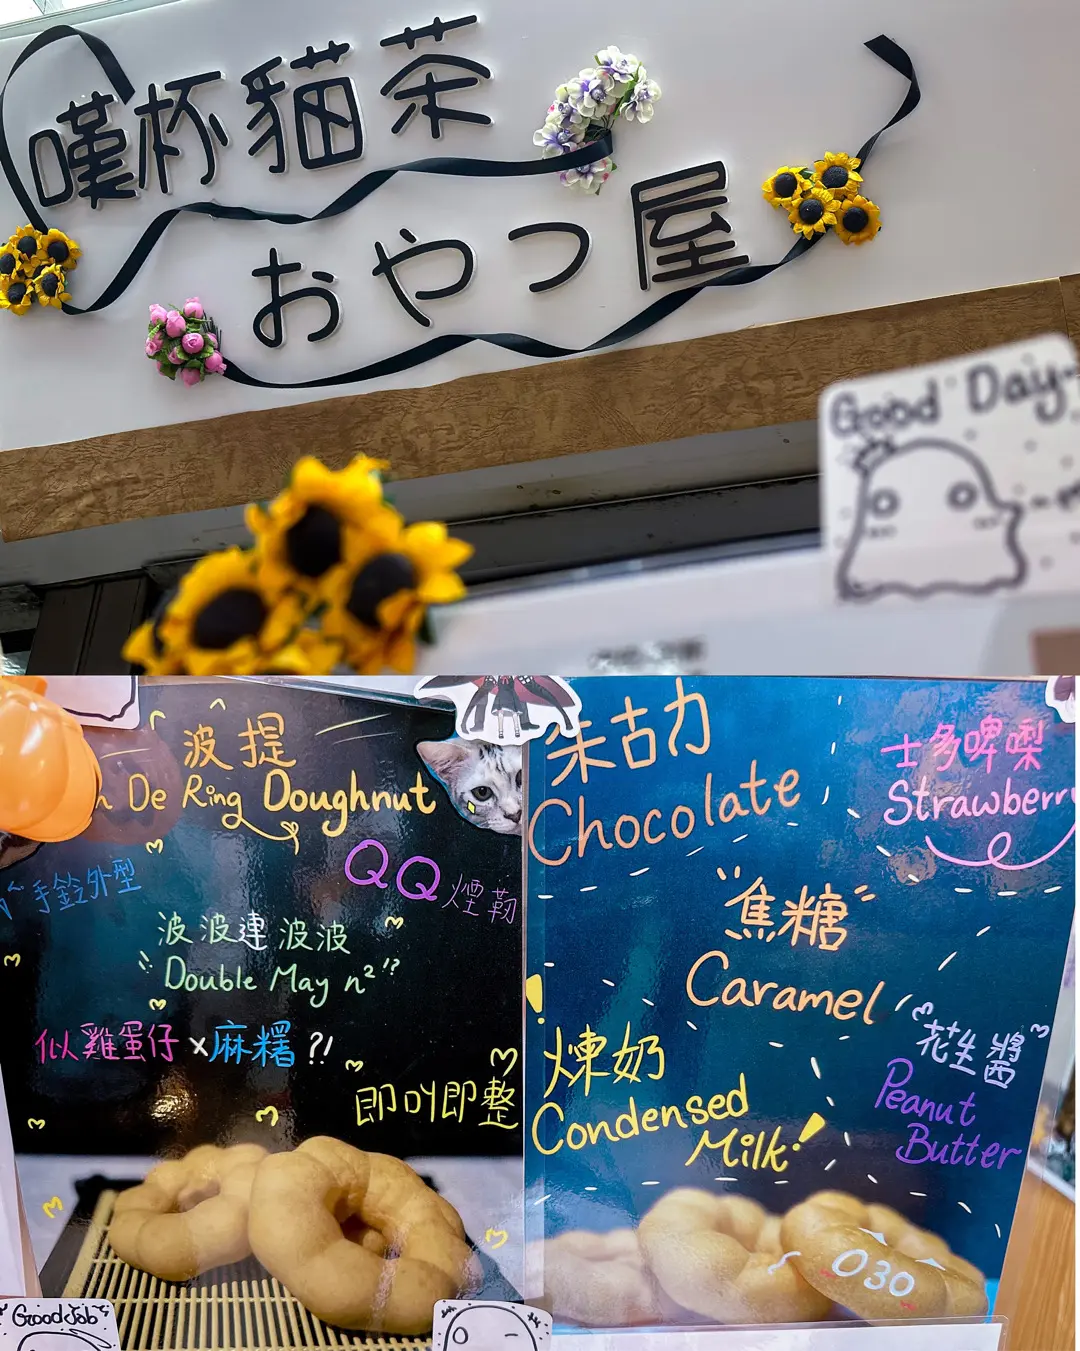 嘆杯貓茶
おやつ屋
Good Day
波提
De Ring Doughnut
手鈴外型
QQ煙韌
波波連波波
Double May n²!?
似雞蛋仔×麻糬?!
即叫即整
Good Job
朱古力
Chocolate
士多啤梨
Strawberry
"焦糖"
Caramel
煉奶
Condensed
Milk!
花生醬
Peanut
Butter
030